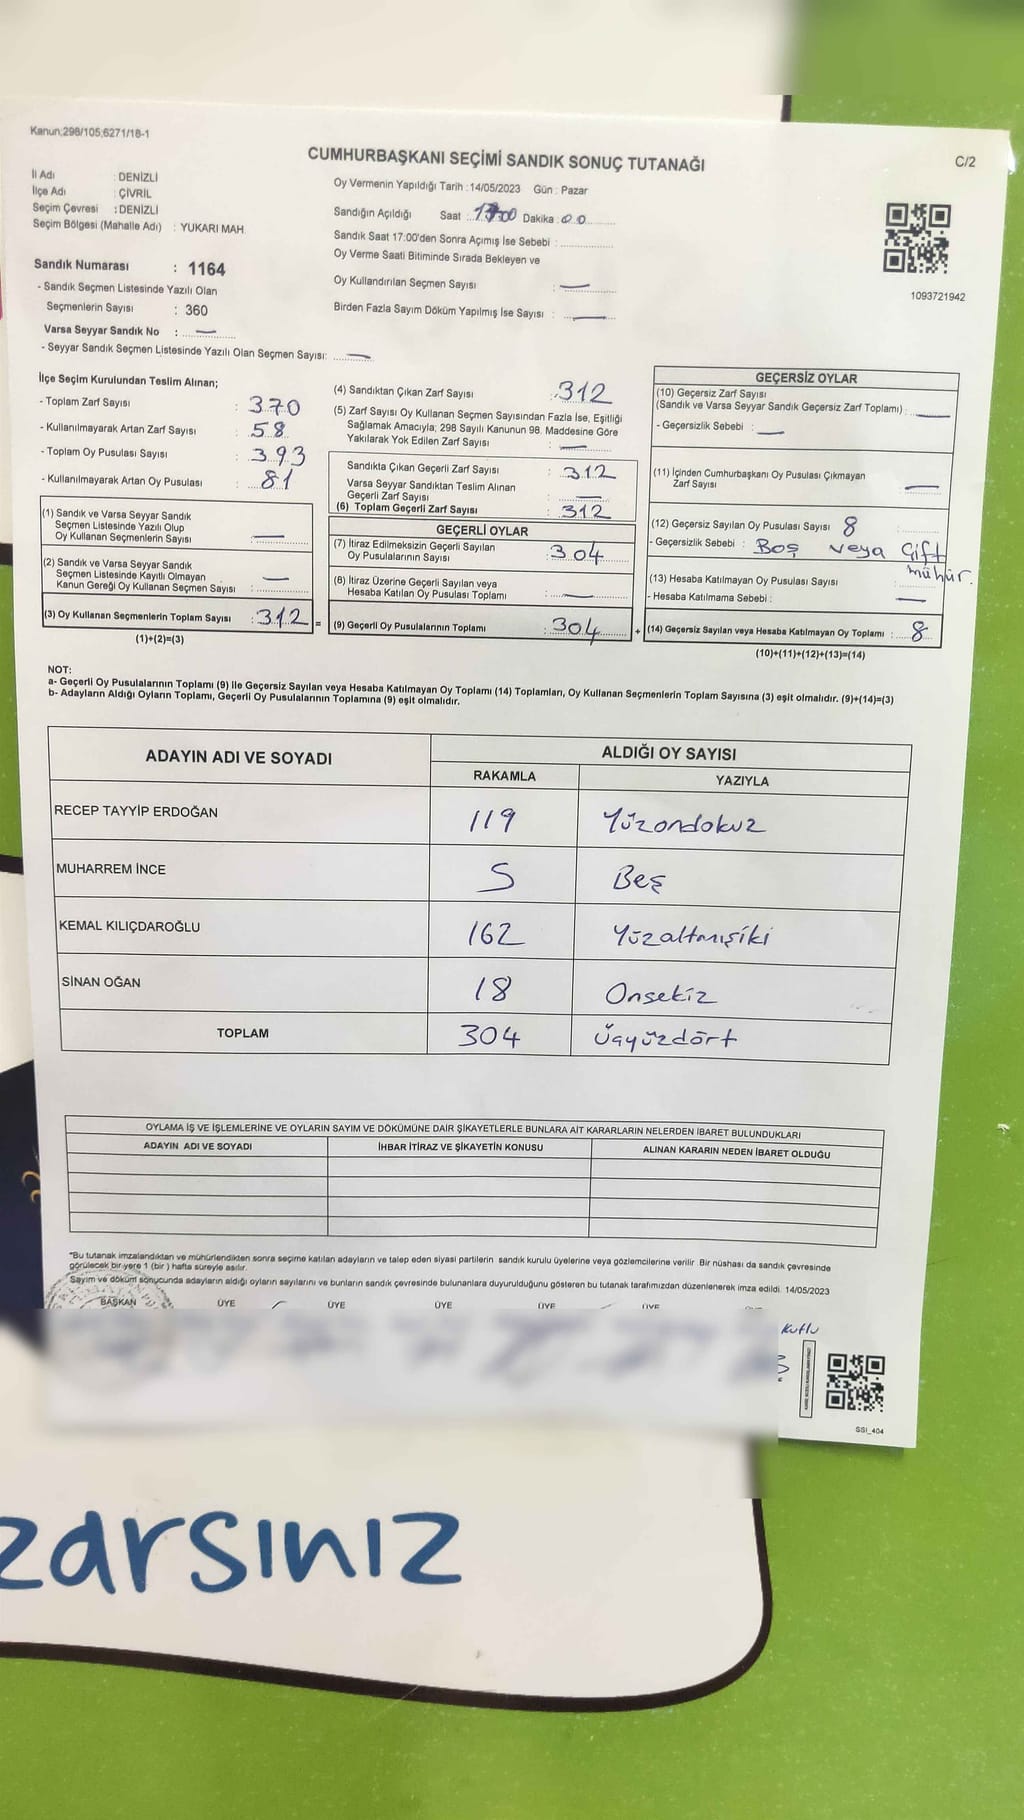 Kanun;298/105;6271/18-1
CUMHURBAŞKANI SEÇİMİ SANDIK SONUÇ TUTANAĞI
C/2
İl Adı : DENİZLİ
İlçe Adı : ÇİVRİL
Seçim Çevresi : DENİZLİ
Seçim Bölgesi (Mahalle Adı) : YUKARI MAH.
Oy Vermenin Yapıldığı Tarih : 14/05/2023 Gün : Pazar
Sandığın Açıldığı Saat : 17:00 Dakika : 00
Sandık Saat 17:00'den Sonra Açımış İse Sebebi :
Oy Verme Saati Bitiminde Sırada Bekleyen ve
Oy Kullandırılan Seçmen Sayısı : —
Birden Fazla Sayım Döküm Yapılmış İse Sayısı : —
1093721942
Sandık Numarası : 1164
- Sandık Seçmen Listesinde Yazılı Olan
Seçmenlerin Sayısı : 360
Varsa Seyyar Sandık No : —
- Seyyar Sandık Seçmen Listesinde Yazılı Olan Seçmen Sayısı: —
İlçe Seçim Kurulundan Teslim Alınan;
- Toplam Zarf Sayısı : 370
- Kullanılmayarak Artan Zarf Sayısı : 58
- Toplam Oy Pusulası Sayısı : 393
- Kullanılmayarak Artan Oy Pusulası : 81
(1) Sandık ve Varsa Seyyar Sandık
Seçmen Listesinde Yazılı Olup
Oy Kullanan Seçmenlerin Sayısı : —
(2) Sandık ve Varsa Seyyar Sandık
Seçmen Listesinde Kayıtlı Olmayan
Kanun Gereği Oy Kullanan Seçmen Sayısı : —
(3) Oy Kullanan Seçmenlerin Toplam Sayısı : 312 =
(1)+(2)=(3)
(4) Sandıktan Çıkan Zarf Sayısı : 312
(5) Zarf Sayısı Oy Kullanan Seçmen Sayısından Fazla İse, Eşitliği
Sağlamak Amacıyla; 298 Sayılı Kanunun 98. Maddesine Göre
Yakılarak Yok Edilen Zarf Sayısı : —
Sandıkta Çıkan Geçerli Zarf Sayısı : 312
Varsa Seyyar Sandıktan Teslim Alınan
Geçerli Zarf Sayısı : —
(6) Toplam Geçerli Zarf Sayısı : 312
GEÇERLİ OYLAR
(7) İtiraz Edilmeksizin Geçerli Sayılan
Oy Pusulalarının Sayısı : 304
(8) İtiraz Üzerine Geçerli Sayılan veya
Hesaba Katılan Oy Pusulası Toplamı : —
(9) Geçerli Oy Pusulalarının Toplamı : 304 +
GEÇERSİZ OYLAR
(10) Geçersiz Zarf Sayısı
(Sandık ve Varsa Seyyar Sandık Geçersiz Zarf Toplamı) : —
- Geçersizlik Sebebi : —
(11) İçinden Cumhurbaşkanı Oy Pusulası Çıkmayan
Zarf Sayısı : —
(12) Geçersiz Sayılan Oy Pusulası Sayısı 8
- Geçersizlik Sebebi : Boş veya Çift
mühür.
(13) Hesaba Katılmayan Oy Pusulası Sayısı :
- Hesaba Katılmama Sebebi : —
(14) Geçersiz Sayılan veya Hesaba Katılmayan Oy Toplamı : 8
(10)+(11)+(12)+(13)=(14)
NOT:
a- Geçerli Oy Pusulalarının Toplamı (9) ile Geçersiz Sayılan veya Hesaba Katılmayan Oy Toplamı (14) Toplamları, Oy Kullanan Seçmenlerin Toplam Sayısına (3) eşit olmalıdır. (9)+(14)=(3)
b- Adayların Aldığı Oyların Toplamı, Geçerli Oy Pusulalarının Toplamına (9) eşit olmalıdır.
ADAYIN ADI VE SOYADI
ALDIĞI OY SAYISI
RAKAMLA YAZIYLA
RECEP TAYYİP ERDOĞAN 119 Yüzondokuz
MUHARREM İNCE 5 Beş
KEMAL KILIÇDAROĞLU 162 Yüzaltmışiki
SİNAN OĞAN 18 Onsekiz
TOPLAM 304 Üçyüzdört
OYLAMA İŞ VE İŞLEMLERİNE VE OYLARIN SAYIM VE DÖKÜMÜNE DAİR ŞİKAYETLERLE BUNLARA AİT KARARLARIN NELERDEN İBARET BULUNDUKLARI
ADAYIN ADI VE SOYADI İHBAR İTİRAZ VE ŞİKAYETİN KONUSU ALINAN KARARIN NEDEN İBARET OLDUĞU
"Bu tutanak imzalandıktan ve mühürlendikten sonra seçime katılan adayların ve talep eden siyasi partilerin sandık kurulu üyelerine veya gözlemcilerine verilir. Bir nüshası da sandık çevresinde
görülecek bir yere 1 (bir) hafta süreyle asılır.
Sayım ve döküm sonucunda adayların aldığı oyların sayılarını ve bunların sandık çevresinde bulunanlara duyurulduğunu gösteren bu tutanak tarafımızdan düzenlenerek imza edildi. 14/05/2023
BAŞKAN ÜYE ÜYE ÜYE ÜYE ÜYE
Kutlu
SSI_404
zarsınız